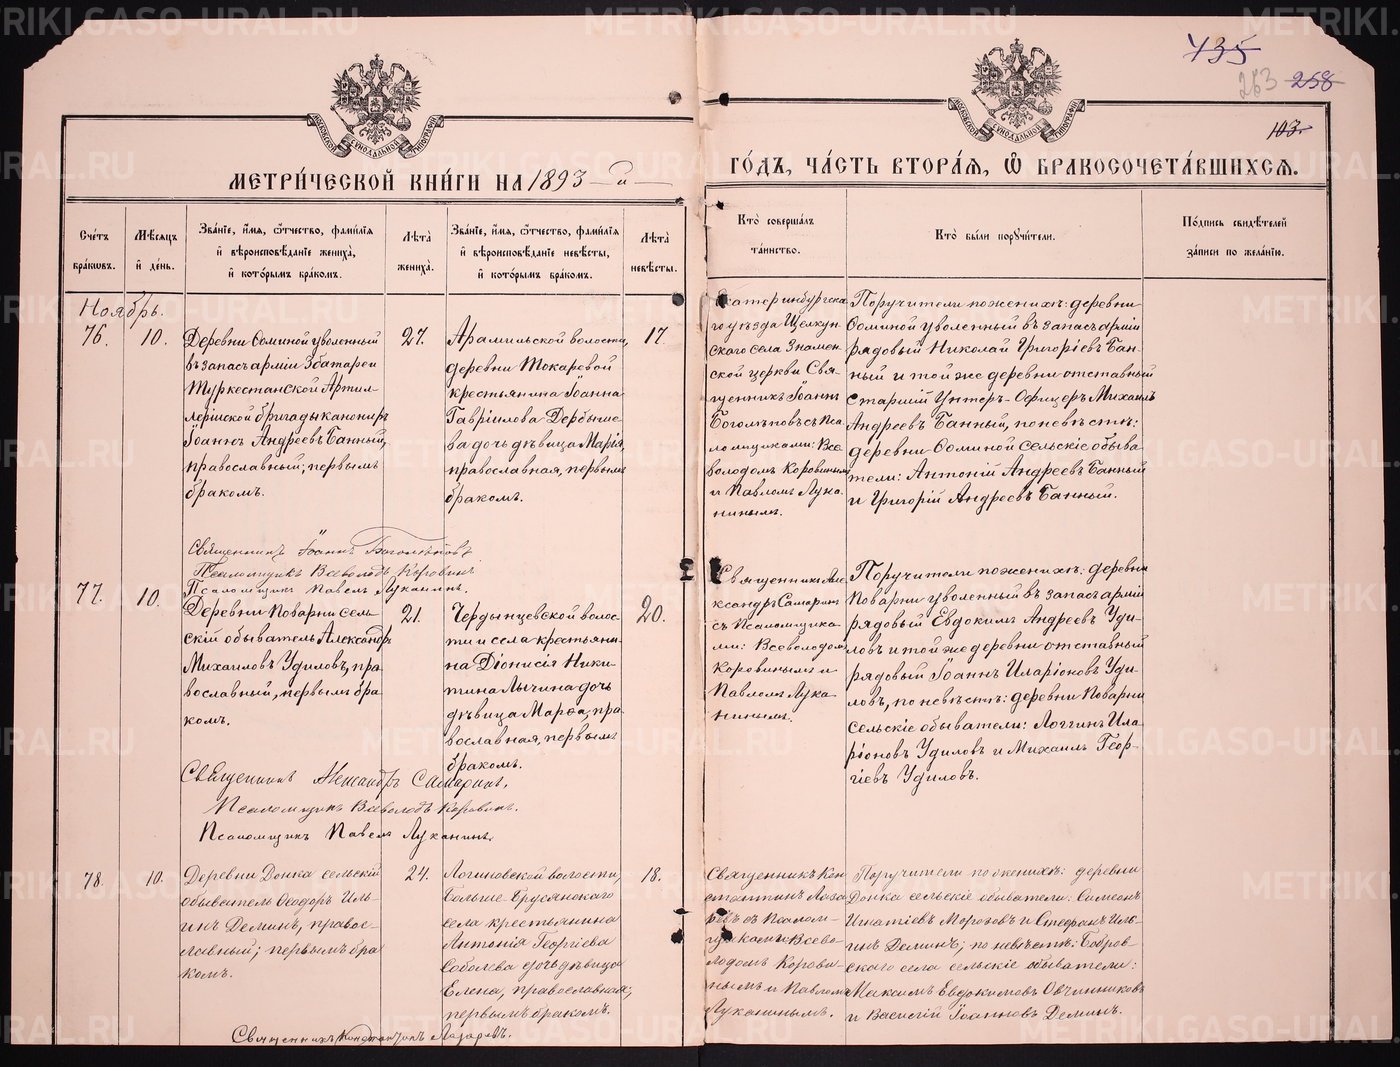 METRIKI.GASO-URAL.RU
735
263 258
103.
МОСКОВСКОЙ СѴНОДАЛЬНОЙ ТИПОГРАФІИ
МОСКОВСКОЙ СѴНОДАЛЬНОЙ ТИПОГРАФІИ
МЕТРИ́ЧЕСКОЙ КНИ́ГИ НА 1893 –й–
ГО́ДЪ, ЧА́СТЬ ВТОРА́Я, Ѽ БРАКОСОЧЕТА́ВШИХСЯ.
Сче́тъ
бра́кѡвъ.
Мѣ́сяцъ
и҆ де́нь.
Зва́нїе, и҆́мя, ѻ҆́тчество, фами́лїя
и҆ вѣроисповѣ́данїе жениха̀,
и҆ кото́рымъ бра́комъ.
Лѣ́та
жениха̀.
Зва́нїе, и҆́мя, ѻ҆́тчество, фами́лїя
и҆ вѣроисповѣ́данїе невѣ́сты,
и҆ кото́рымъ бра́комъ.
Лѣ́та
невѣ́сты.
Кто̀ соверша́лъ
та́инство.
Кто̀ бы́ли порꙋчи́тели.
По́дпись свидѣ́телей
за́писи по жела́нїю.
Ноябрь.
76.
10.
Деревни Соминой уволенный
въ запасъ арміи 3 батареи
Туркестанской Артил-
лерійской бригады канониръ
Іоаннъ Андреевъ Банный,
православный; первымъ
бракомъ.
27.
Арамильской волости,
деревни Токаревой
крестьянина Іоанна
Гавріилова Дербыше-
ва дочь дѣвица Марья,
православная, первымъ
бракомъ.
17.
Екатеринбургска-
го уѣзда Щелкун-
скаго села Знамен-
ской церкви Свя-
щенникъ Іоаннъ
Боголѣповъ съ Пса-
ломщиками: Все-
володомъ Коровинымъ
и Павломъ Лука-
нинымъ.
Поручители по женихѣ: деревни
Соминой уволенный въ запасъ арміи
рядовый Николай Григоріевъ Бан-
ный и той же деревни отставный
Старшій Унтеръ-Офицеръ Михаилъ
Андреевъ Банный, по невѣстѣ:
деревни Соминой сельскіе обыва-
тели: Антоній Андреевъ Банный
и Григорій Андреевъ Банный.
Священникъ Іоаннъ Боголѣповъ
Псаломщикъ Всеволодъ Коровинъ
Псаломщикъ Павелъ Луканинъ.
77.
10.
Деревни Поварни сель-
скій обыватель Александръ
Михаиловъ Удиловъ, пра-
вославный, первымъ бра-
комъ.
21.
Чердынцевской волос-
ти и села крестьяни-
на Діонисія Ники-
тина Лычина дочь
дѣвица Марѳа, пра-
вославная, первымъ
бракомъ.
20.
Священникъ Але-
ксандръ Самаринъ
съ Псаломщика-
ми: Всеволодомъ
Коровинымъ и
Павломъ Лука-
нинымъ.
Поручители по женихѣ: деревни
Поварни уволенный въ запасъ арміи
рядовый Евдокимъ Андреевъ Уди-
ловъ и той же деревни отставный
рядовый Іоаннъ Иларіоновъ Уди-
ловъ, по невѣстѣ: деревни Поварни
сельскіе обыватели: Логгинъ Ила-
ріоновъ Удиловъ и Михаилъ Геор-
гіевъ Удиловъ.
Священникъ Александръ Самаринъ.
Псаломщикъ Всеволодъ Коровинъ.
Псаломщикъ Павелъ Луканинъ.
78.
10.
Деревни Донка сельскій
обыватель Ѳеодоръ Иль-
инъ Деминъ, право-
славный; первымъ бра-
комъ.
24.
Логиновской волости,
Больше Брусянскаго
села крестьянина
Антонія Георгіева
Соболева дочь дѣвица
Елена, православная;
первымъ бракомъ.
18.
Священникъ Кон-
стантинъ Лаза-
ревъ съ Псалом-
щиками: Всево-
лодомъ Корови-
нымъ и Павломъ
Луканинымъ.
Поручители по женихѣ: деревни
Донка сельскіе обыватели: Симеонъ
Игнатіевъ Морозовъ и Стефанъ Иль-
инъ Деминъ; по невѣстѣ: Бобров-
скаго села сельскіе обыватели:
Максимъ Евдокимовъ Овчинниковъ
и Василій Іоанновъ Деминъ.
Священникъ Константинъ Лазаревъ.